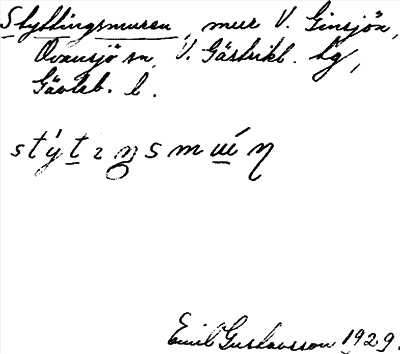 Styttingsmuren, mur V. Ginsjön,
Ovansjö sn, V. Gästrikl. hg,
Gävleb. l.
Emil Gustavsson 1929.